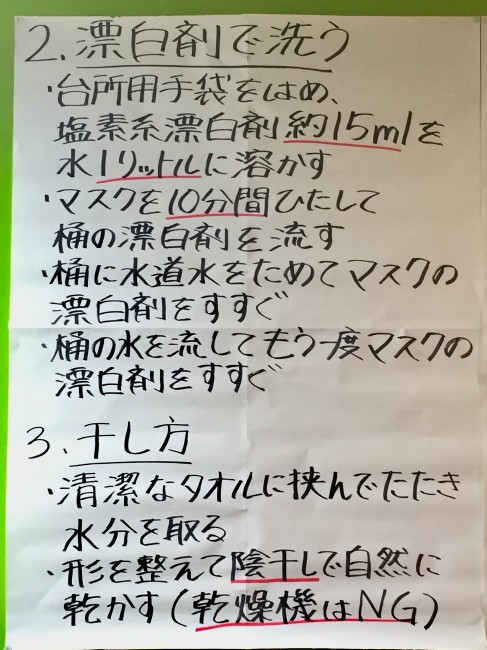 2. 漂白剤で洗う
・台所用手袋をはめ、
塩素系漂白剤約15mlを
水1リットルに溶かす
・マスクを10分間ひたして
桶の漂白剤を流す
・桶に水道水をためてマスクの
漂白剤をすすぐ
・桶の水を流してもう一度マスクの
漂白剤をすすぐ
3. 干し方
・清潔なタオルに挟んでたたき
水分を取る
・形を整えて陰干しで自然に
乾かす(乾燥機はNG)